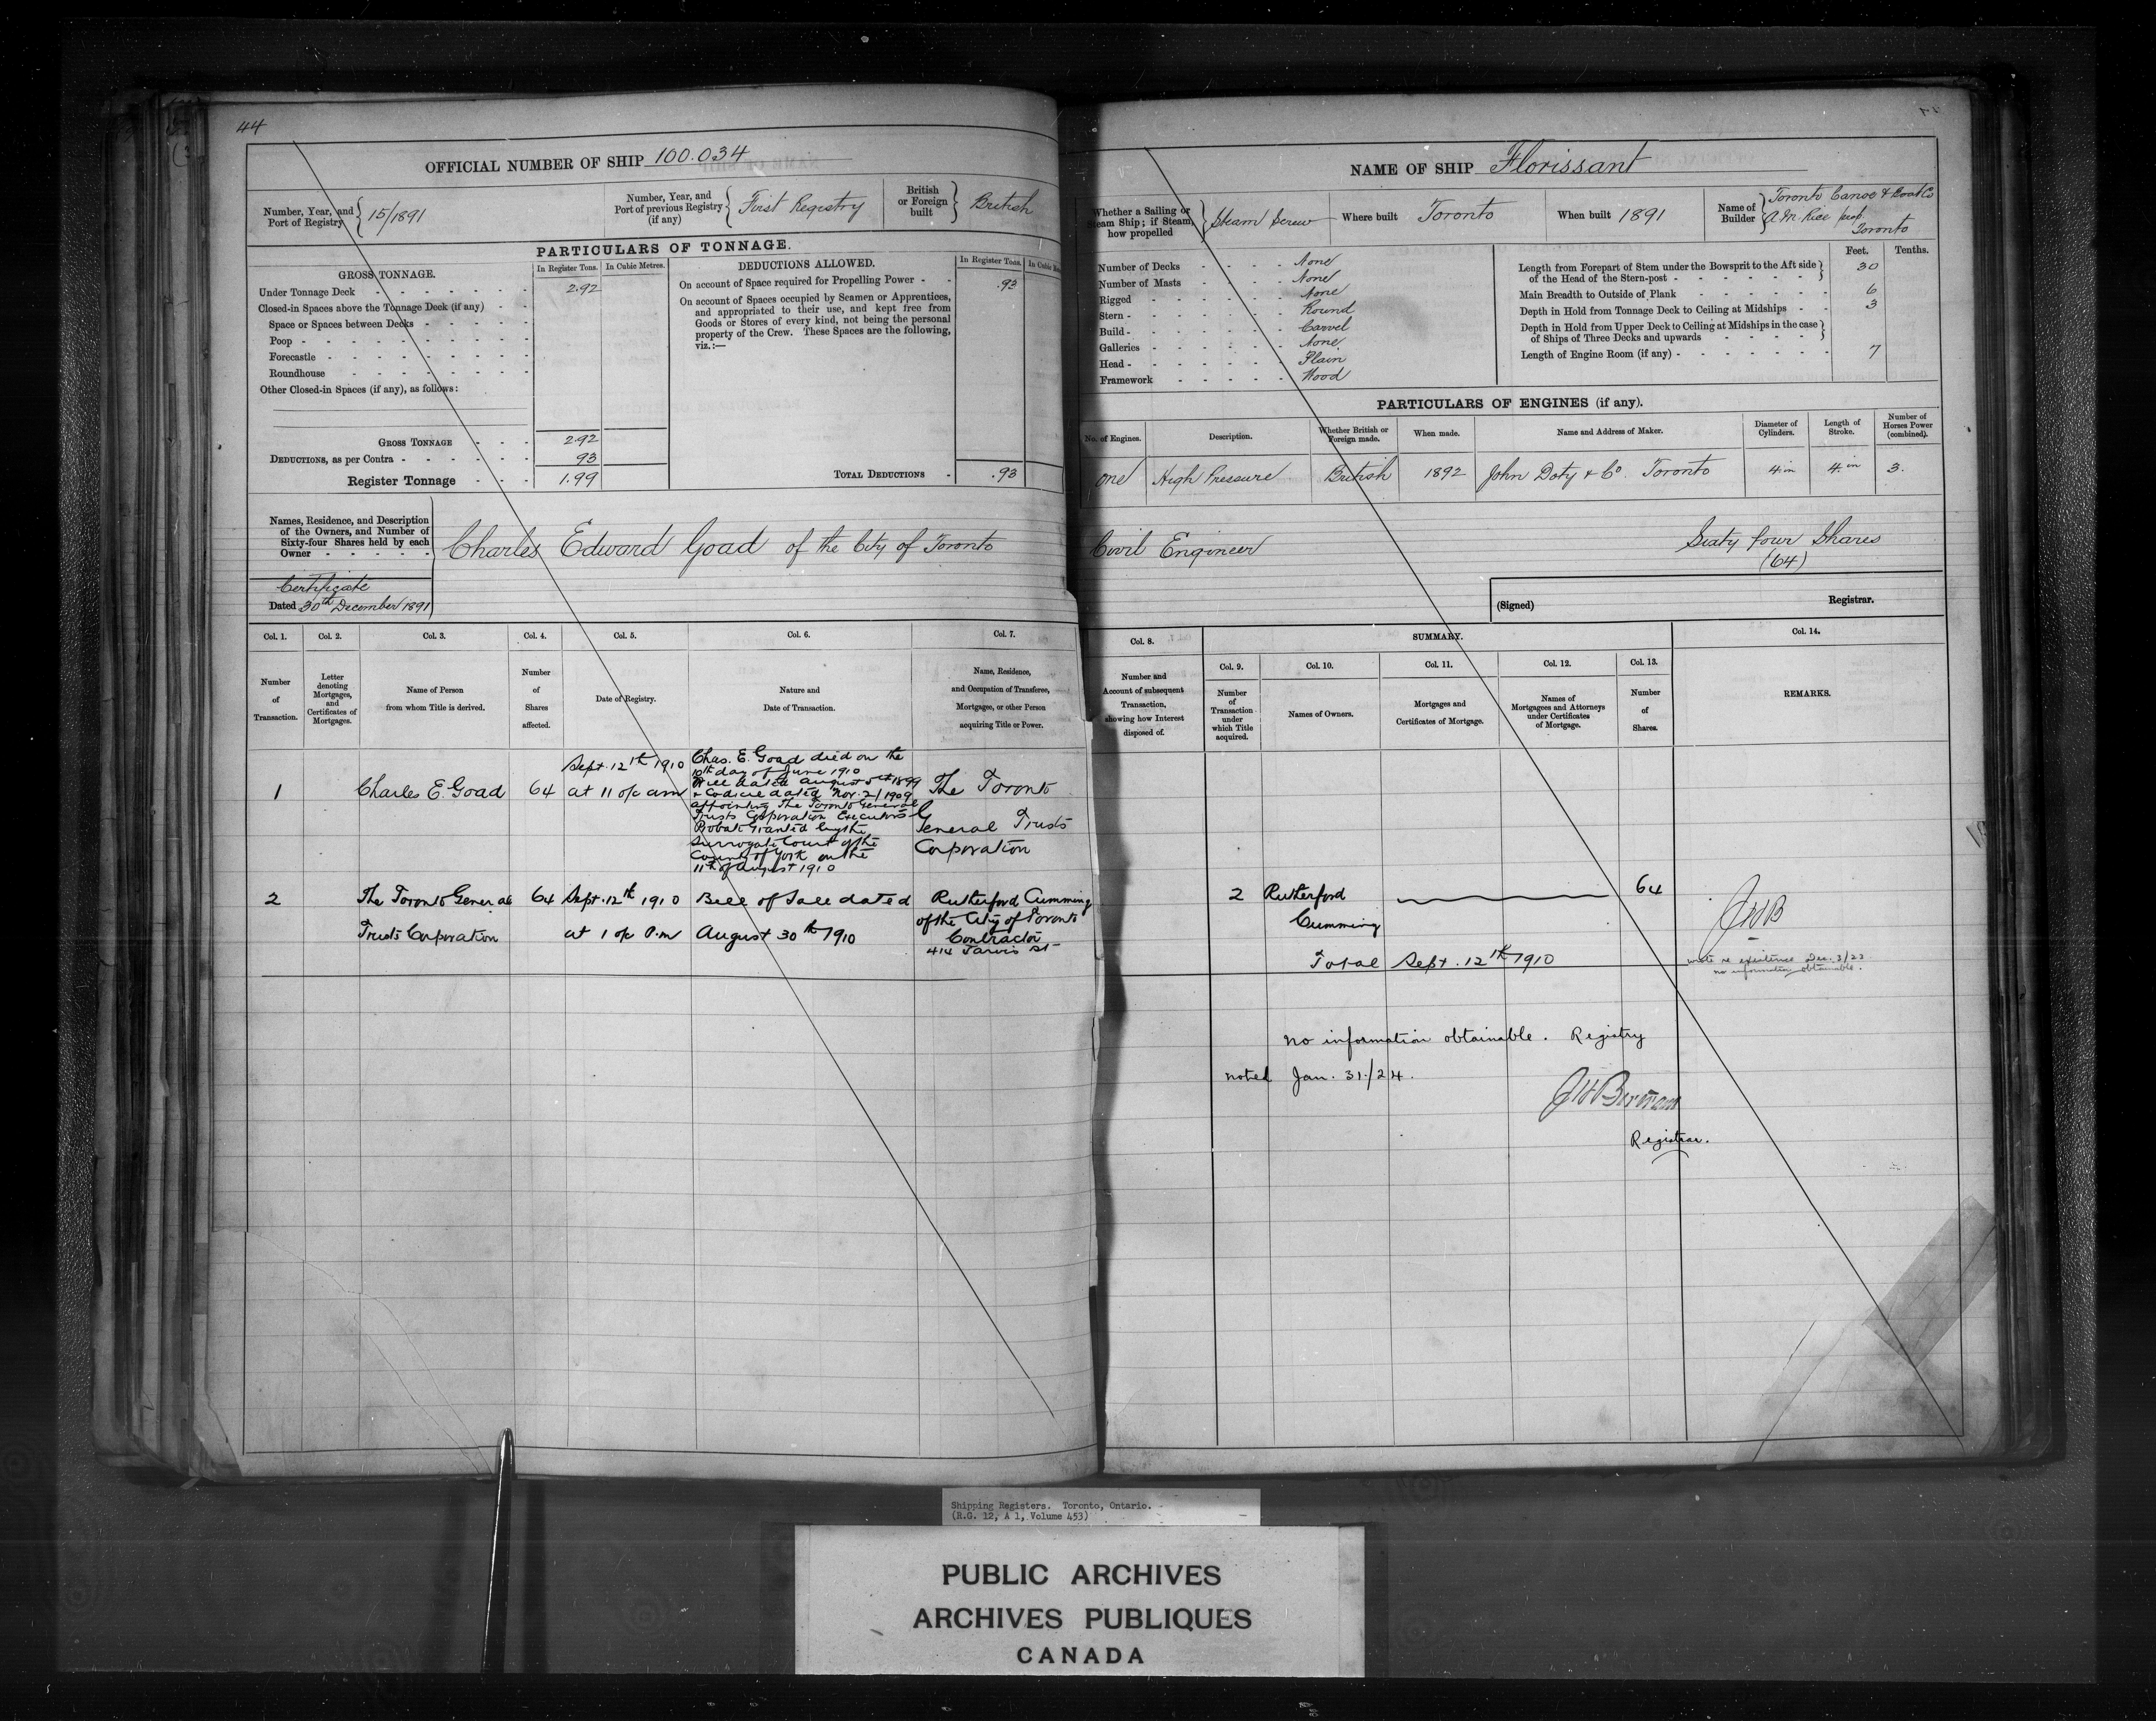 44
OFFICIAL NUMBER OF SHIP 100.034
Number, Year, and Port of Registry 15/1891
Number, Year, and Port of previous Registry (if any) First Registry
British or Foreign built British
PARTICULARS OF TONNAGE.
GROSS TONNAGE.
In Register Tons. In Cubic Metres.
Under Tonnage Deck 2.92
Closed-in Spaces above the Tonnage Deck (if any)
Space or Spaces between Decks
Poop
Forecastle
Roundhouse
Other Closed-in Spaces (if any), as follows:
GROSS TONNAGE 2.92
DEDUCTIONS, as per Contra 93
Register Tonnage 1.99
DEDUCTIONS ALLOWED.
In Register Tons. In Cubic
On account of Space required for Propelling Power .93
On account of Spaces occupied by Seamen or Apprentices,
and appropriated to their use, and kept free from
Goods or Stores of every kind, not being the personal
property of the Crew. These Spaces are the following,
viz.:—
TOTAL DEDUCTIONS .93
Names, Residence, and Description
of the Owners, and Number of
Sixty-four Shares held by each
Owner
Charles Edward Goad of the City of Toronto
Certificate
Dated 30th December 1891
Col. 1. Col. 2. Col. 3. Col. 4. Col. 5. Col. 6. Col. 7.
Number of Transaction.
Letter denoting Mortgages, and Certificates of Mortgages.
Name of Person from whom Title is derived.
Number of Shares affected.
Date of Registry.
Nature and Date of Transaction.
Name, Residence, and Occupation of Transferee, Mortgagee, or other Person acquiring Title or Power.
1
Charles E. Goad
64
Sept. 12th 1910
at 11 o/c am
Chas. E. Goad died on the
10th day of June 1910
Will dated August 5th 1899
+ Codicil dated Nov. 2/1909
appointing The Toronto General
Trusts Corporation Executors
Probate Granted by the
Surrogate Court of the
County of York on the
11th of August 1910
The Toronto
General Trusts
Corporation
2
The Toronto General
Trusts Corporation
64
Sept. 12th 1910
at 1 o/c P.m
Bill of Sale dated
August 30th 1910
Rutherford Cumming
of the City of Toronto
Contractor
414 Jarvis St
NAME OF SHIP Florissant
Whether a Sailing or Steam Ship; if Steam, how propelled Steam Screw
Where built Toronto
When built 1891
Name of Builder
Toronto Canoe & Boat Co
A.M. Rice prop.
Toronto
Number of Decks None
Number of Masts None
Rigged None
Stern Round
Build Carvel
Galleries None
Head Plain
Framework Wood
Feet. Tenths.
Length from Forepart of Stem under the Bowsprit to the Aft side
of the Head of the Stern-post 30
Main Breadth to Outside of Plank 6
Depth in Hold from Tonnage Deck to Ceiling at Midships 3
Depth in Hold from Upper Deck to Ceiling at Midships in the case
of Ships of Three Decks and upwards
Length of Engine Room (if any) 7
PARTICULARS OF ENGINES (if any).
No. of Engines. Description. Whether British or Foreign made. When made. Name and Address of Maker. Diameter of Cylinders. Length of Stroke. Number of Horses Power (combined).
One High Pressure British 1892 John Doty & Co. Toronto 4 in 4 in 3.
Civil Engineer
Sixty four Shares
(64)
(Signed) Registrar.
Col. 8. SUMMARY. Col. 14.
Col. 9. Col. 10. Col. 11. Col. 12. Col. 13.
Number and Account of subsequent Transaction, showing how Interest disposed of.
Number of Transaction under which Title acquired.
Names of Owners.
Mortgages and Certificates of Mortgage.
Names of Mortgagees and Attorneys under Certificates of Mortgage.
Number of Shares.
REMARKS.
2 Rutherford 64
Cumming
Total Sept. 12th 1910
JHB
wrote re existence Dec. 3/23
no information obtainable.
No information obtainable. Registry
noted Jan. 31./24.
Registrar.
Shipping Registers. Toronto, Ontario.
(R.G. 12, A 1, Volume 453)
PUBLIC ARCHIVES
ARCHIVES PUBLIQUES
CANADA